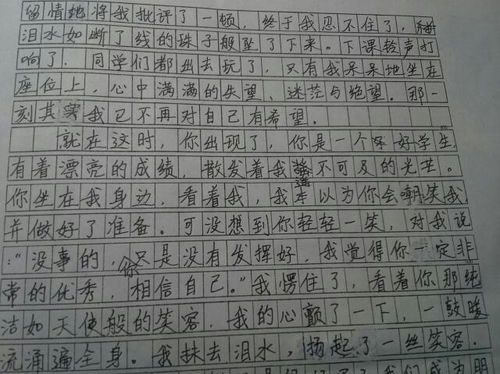 留情地将我批评了一顿，终于我忍不住了，
泪水如断了线的珠子般坠了下来。下课铃声打
响了，同学们都出去玩了，只有我呆呆地坐在
座位上，心中满满的失望、迷茫与绝望。那一
刻其实我已不再对自己有希望。
就在这时，你出现了，你是一个好学生，
有着漂亮的成绩，散发着我遥不可及的光芒。
你坐在我身边，看着我，我本以为你会嘲笑我，
并做好了准备。可没想到你轻轻一笑，对我说
："没事的，你只是没有发挥好，我觉得你一定非
常的优秀，相信自己。"我愣住了，看着你那纯
洁如天使般的笑容，我的心颤了一下，一鼓暖
流涌遍全身。我抹去泪水，扬起了一丝笑容。
我们成为朋